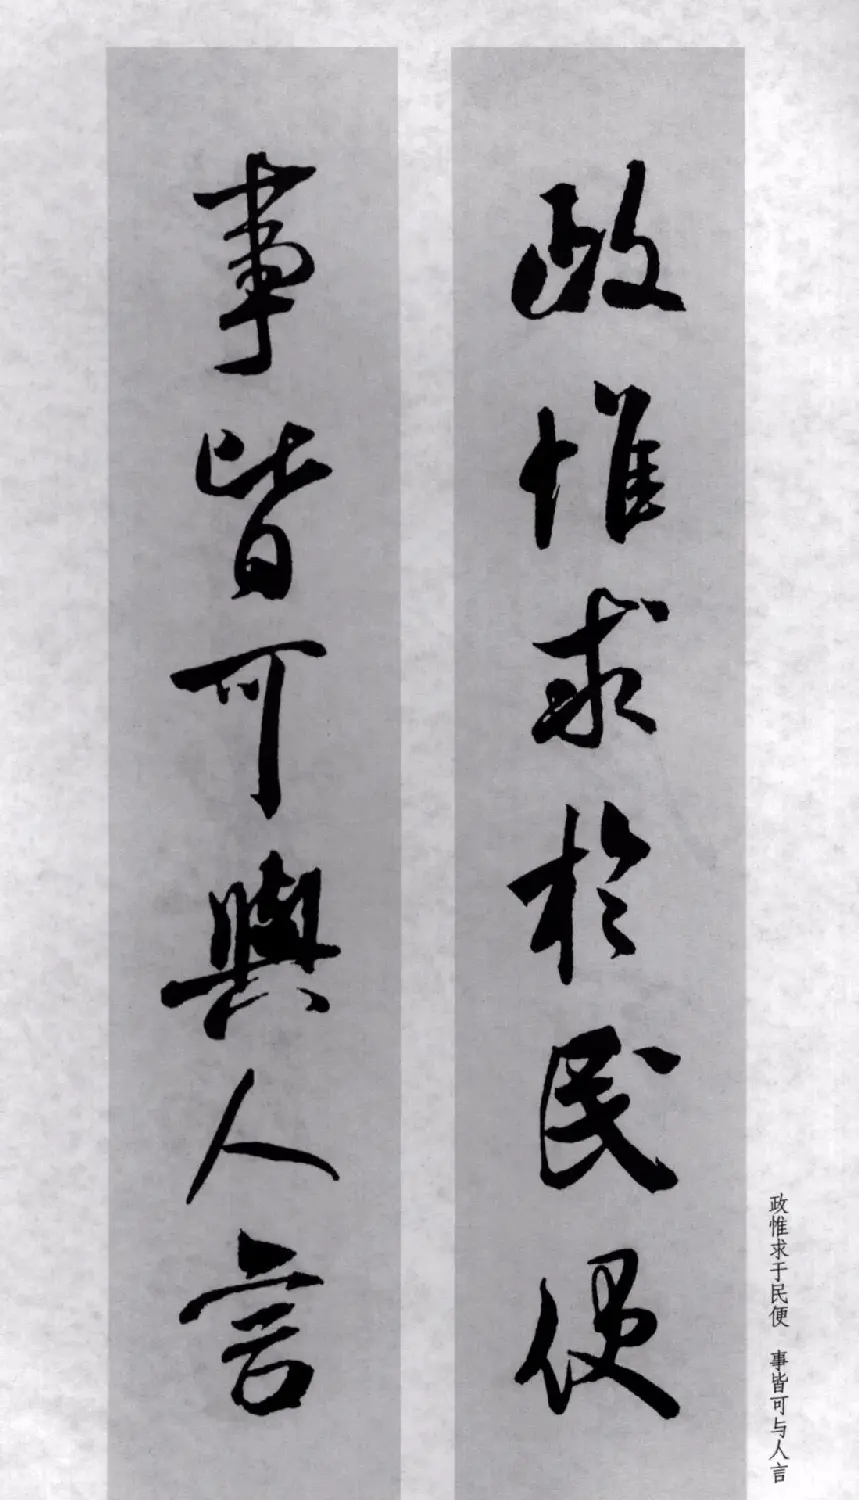 政惟求於民便
事皆可與人言
政惟求于民便　事皆可与人言